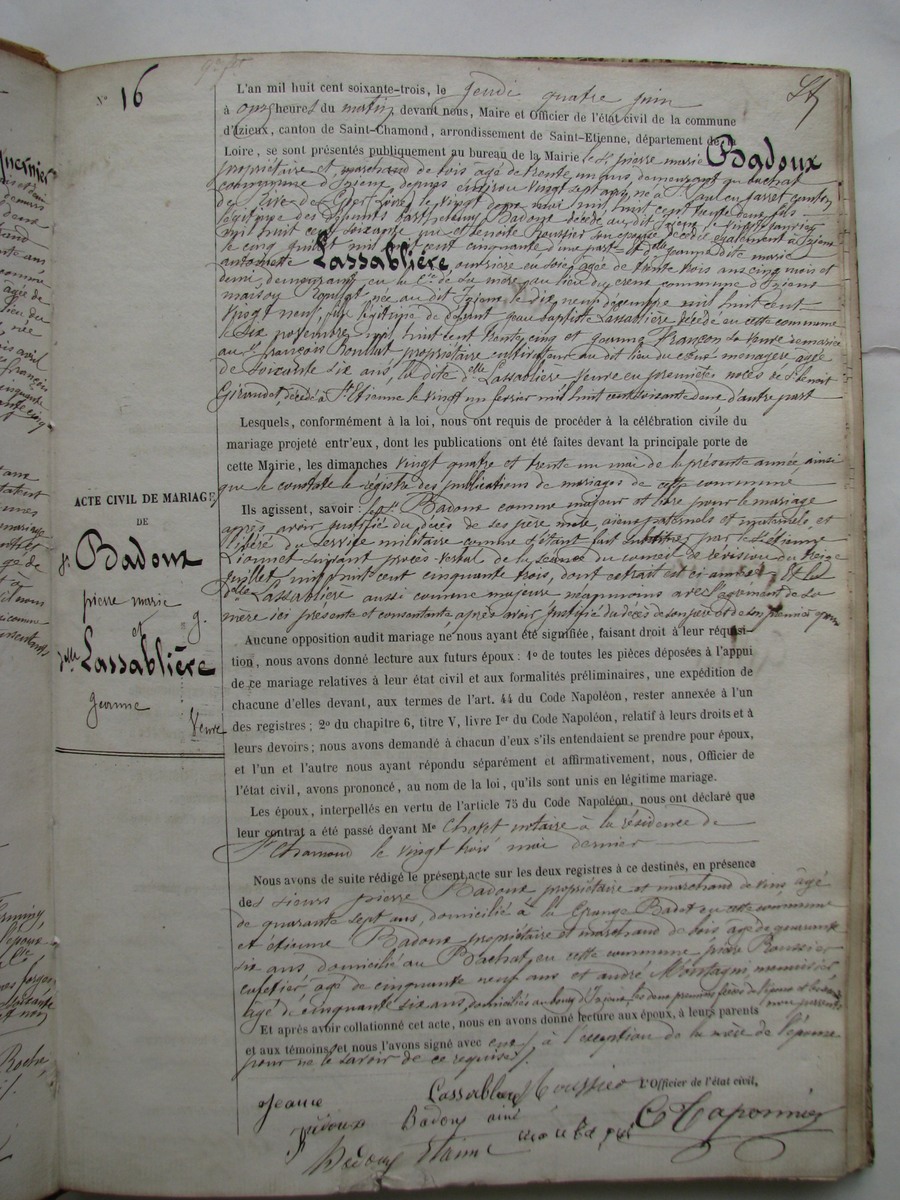 N° 16
L'an mil huit cent soixante-trois, le jeudi quatre juin
à onze heures du matin devant nous, Maire et Officier de l'état civil de la commune
d'Izieux, canton de Saint-Chamond, arrondissement de Saint-Etienne, département de la
Loire, se sont présentés publiquement au bureau de la Mairie le Sr pierre marie Badoux
propriétaire et marchand de bois âgé de trente un ans demeurant au bachat
commune d'Izieux depuis environ vingt sept ans, né à canton
de Rive de Gier (Loire) le vingt mil huit cent trente deux fils
légitime des défunts barthelemy Badoux décédé au dit Izieux le vingt janvier
mil huit cent soixante un et benoite Roussier son épouse décédée également à Izieux
le cinq juillet mil huit cent cinquante d'une part = et delle jeanne dite marie
antoinette Lassablière, ourdisseuse en soie, âgée de trente trois ans cinq mois et
demi, demeurant en la Cie de sa mère au lieu du creux commune d'Izieux
maison née au dit Izieux le dix neuf décembre mil huit cent
vingt neuf, fille légitime de défunt jean baptiste Lassablière décédé en cette commune
le six novembre mil huit cent trente cinq et jeanne françon sa veuve remariée
au Sr françois propriétaire cultivateur au dit lieu du creux ménagère âgée
de soixante six ans, la dite delle Lassablière veuve en premières noces de Sr benoit
Giraudet, décédé à St Etienne le vingt un février mil huit cent soixante deux d'autre part
Lesquels, conformément à la loi, nous ont requis de procéder à la célébration civile du
mariage projeté entr'eux, dont les publications ont été faites devant la principale porte de
cette Mairie, les dimanches vingt quatre et trente un mai de la présente année ainsi
que le constate le registre des publications de mariages de cette commune
Ils agissent, savoir : le Sr Badoux comme majeur et libre pour le mariage
après avoir justifié du décès de ses père mère, aïeux paternels et maternels, et
libéré du service militaire comme s'étant fait substituer par le Sr étienne
Lionnet suivant procès-verbal de la séance du conseil de révision du treize
juillet mil huit cent cinquante trois, dont extrait est ci annexé = Et la
delle Lassablière aussi comme majeure néanmoins avec l'agrément de sa
mère ici présente et consentante après avoir justifié du décès de son père et de son premier époux
ACTE CIVIL DE MARIAGE
DE
Sr Badoux
pierre marie
g.
et
delle Lassablière
jeanne
Veuve
Aucune opposition audit mariage ne nous ayant été signifiée, faisant droit à leur réquisi-
tion, nous avons donné lecture aux futurs époux : 1° de toutes les pièces déposées à l'appui
de ce mariage relatives à leur état civil et aux formalités préliminaires, une expédition de
chacune d'elles devant, aux termes de l'art. 44 du Code Napoléon, rester annexée à l'un
des registres ; 2° du chapitre 6, titre V, livre Ier du Code Napoléon, relatif à leurs droits et à
leurs devoirs ; nous avons demandé à chacun d'eux s'ils entendaient se prendre pour époux,
et l'un et l'autre nous ayant répondu séparément et affirmativement, nous, Officier de
l'état civil, avons prononcé, au nom de la loi, qu'ils sont unis en légitime mariage.
Les époux, interpellés en vertu de l'article 75 du Code Napoléon, nous ont déclaré que
leur contrat a été passé devant Me Chovet notaire à la résidence de
St Chamond le vingt trois mai dernier
Nous avons de suite rédigé le présent acte sur les deux registres à ce destinés, en présence
des sieurs pierre Badoux propriétaire et marchand de vins âgé
de quarante sept ans, domicilié à la Grange Badet en cette commune
et etienne Badoux propriétaire et marchand de bois âgé de quarante
six ans, domicilié au Bachat, en cette commune pierre Roussier
cafetier âgé de cinquante neuf ans et andré Montagni, menuisier
âgé de cinquante six ans, domiciliés au bourg d'Izieux, les deux premiers frères de l'époux et les deux
non parents
Et après avoir collationné cet acte, nous en avons donné lecture aux époux, à leurs parents
et aux témoins, et nous l'avons signé avec eux, à l'exception de la mère de l'épouse
pour ne le savoir de ce requise.
L'Officier de l'état civil,
Jeanne Lassablière Roussier
Badoux ainé
Badoux Etienne